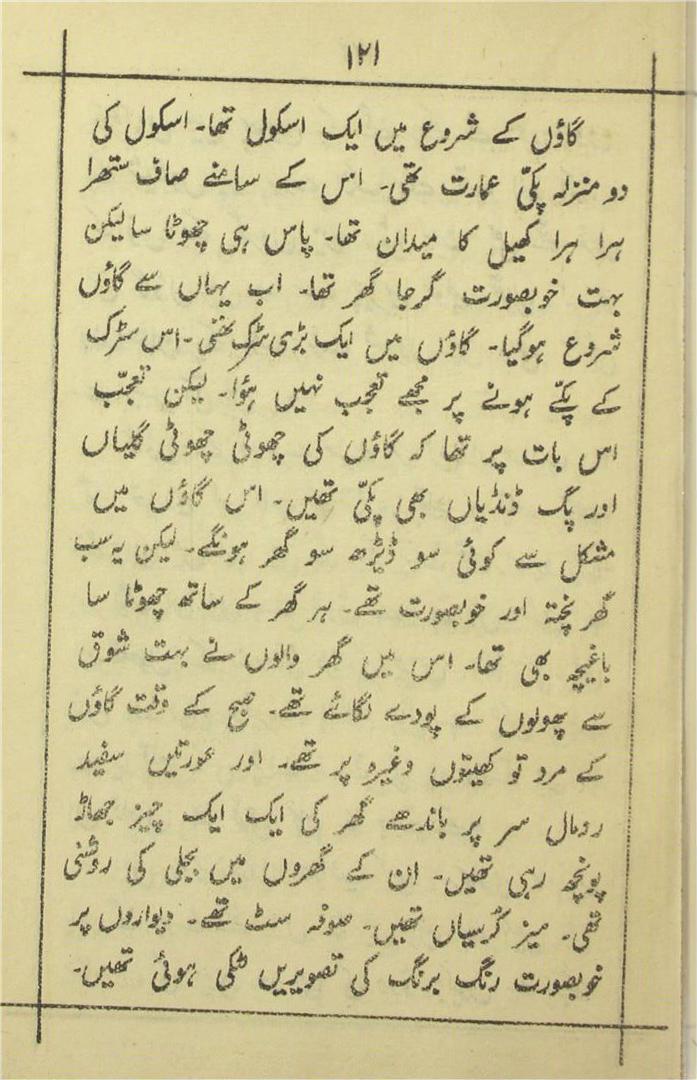 ۱۲۱
گاؤں کے شروع میں ایک اسکول تھا۔ اسکول کی
دو منزلہ پکّی عمارت تھی۔ اس کے سامنے صاف ستھرا
ہرا ہرا کھیل کا میدان تھا۔ پاس ہی چھوٹا سا لیکن
بہت خوبصورت گرجا گھر تھا۔ اب یہاں سے گاؤں
شروع ہوگیا۔ گاؤں میں ایک بڑی سڑک تھی۔ اس سڑک
کے پکّے ہونے پر مجھے تعجب نہیں ہؤا۔ لیکن تعجّب
اس بات پر تھا کہ گاؤں کی چھوٹی چھوٹی گلیاں
اور پگ ڈنڈیاں بھی پکّی تھیں۔ اس گاؤں میں
مشکل سے کوئی سو ڈیڑھ سو گھر ہونگے۔ لیکن یہ سب
گھر پختہ اور خوبصورت تھے۔ ہر گھر کے ساتھ چھوٹا سا
باغیچہ بھی تھا۔ اس میں گھر والوں نے بہت شوق
سے پھولوں کے پودے لگائے تھے۔ صبح کے وقت گاؤں
کے مرد تو کھیتوں وغیرہ پر تھے۔ اور عورتیں سفید
رومال سر پر باندھے گھر کی ایک ایک چیز جھاڑ
پونچھ رہی تھیں۔ ان کے گھروں میں بجلی کی روشنی
تھی۔ میز کُرسیاں تھیں۔ صوفہ سٹ تھے۔ دیواروں پر
خوبصورت رنگ برنگ کی تصویریں ٹنگی ہوئی تھیں۔